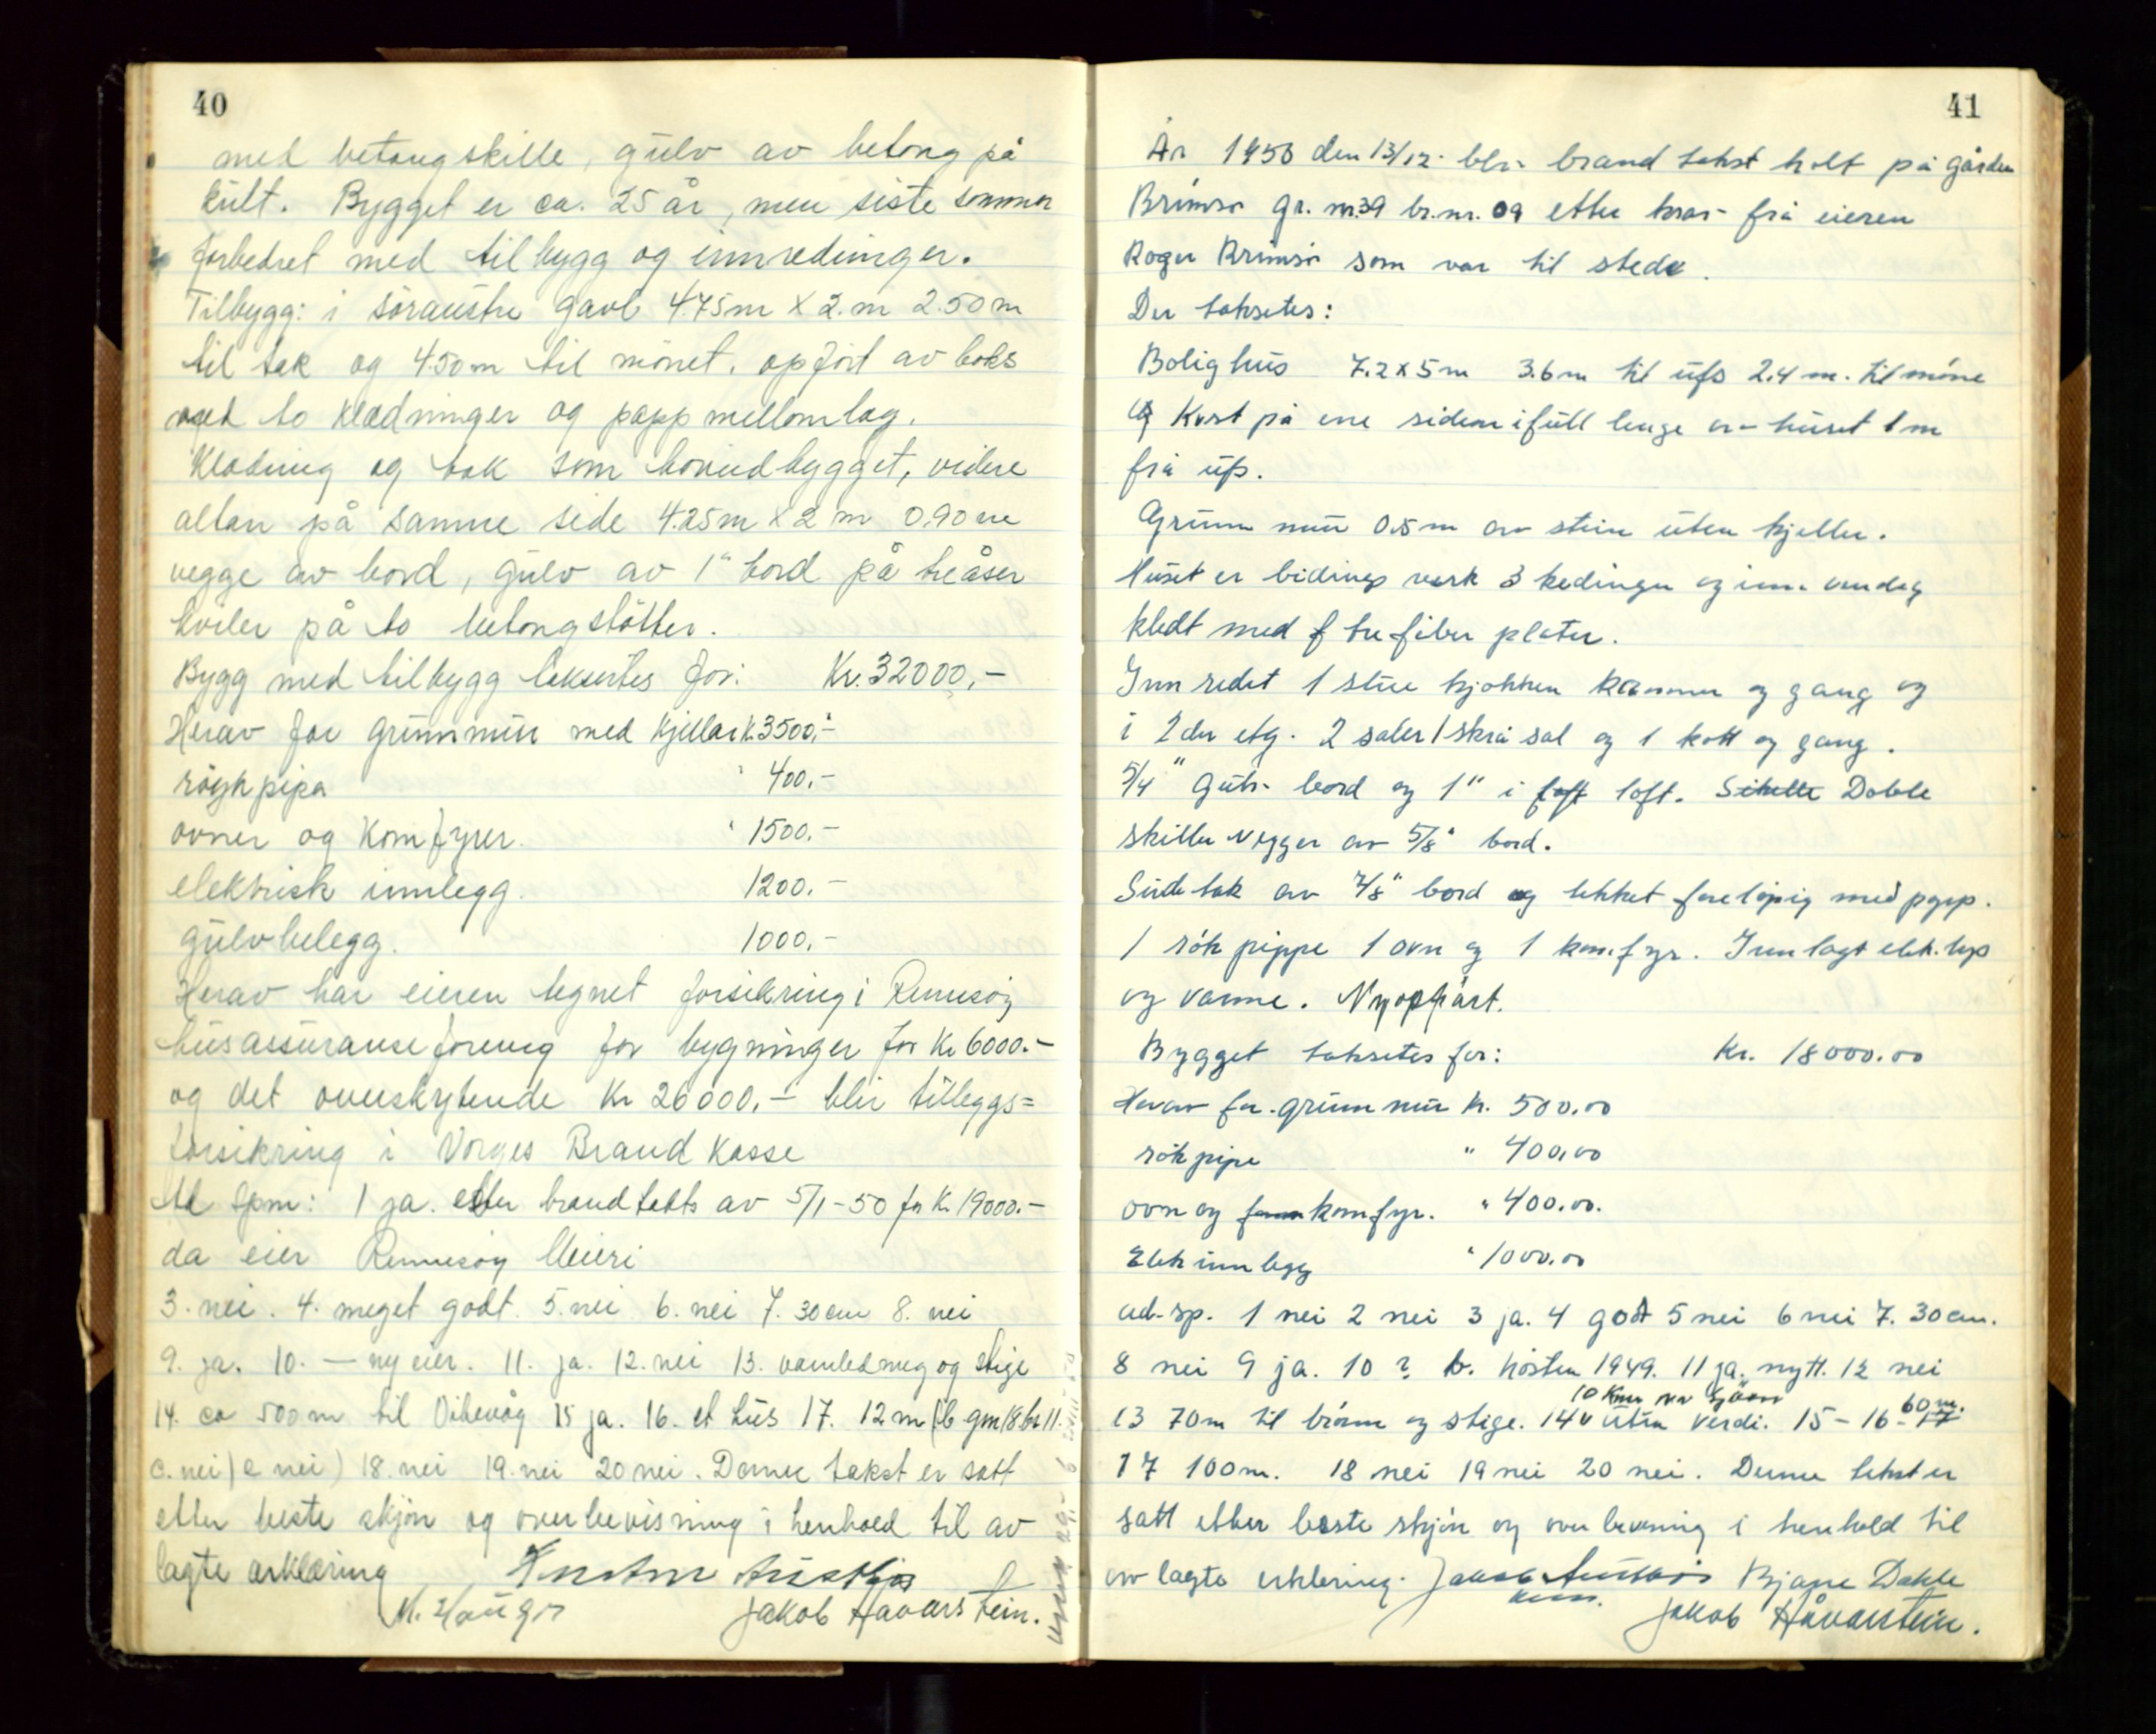 40
med betongskille, gulv av betong på
kult. Bygget er ca. 25 år, men siste sommer
forbedret med tilbygg og innredninger.
Tilbygg: i söraustre gavl 4.75m x 2.m 2.50m
til tak og 4.50m til mönet, opfört av boks
med to klædninger og papp mellomlag.
Klædning og tak som hovudbygget, videre
altan på samme side 4.25m x 2m 0.90m
vegge av bord, gulv av 1" bord på treåser
hviler på to betongstötter.
Bygg med tilbygg taksertes for: Kr. 32000,-
Herav for grunnmur med kjellar K. 3500,-
röykpipa " 400,-
ovner og Komfyrer. " 1500,-
elektrisk innlegg. 1200,-
gulvbelegg. 1000,-
Herav har eieren tegnet forsikring i Rennesöy
husassuranseforening for bygninger for Kr 6000.-
og det overskytende Kr 26000,- blir tilleggs=
forsikring i Norges Brand Kasse
Ad Spm: 1 ja. etter brandtakts av 5/1-50 for Kr. 19000.-
da eier Rennesöy Meieri
3. nei. 4. meget godt. 5. nei 6. nei 7. 30cm 8. nei
9. ja. 10. — ny eier. 11. ja. 12. nei 13. vannledning og stige
14. ca 500m til Vikevåg 15 ja. 16. et hus 17. 12m (b. gnr 18 br 11.
c. nei) e nei) 18. nei 19. nei 20 nei. Denne takst er satt
etter beste skjön og overbevisning i henhold til av
lagte erklæring
M. Hauge Jakob Håvarstein.
41
År 1950 den 13/12. blv brand takst holt på gården
Brimsö gr. nr. 39 br. nr. 09 etter krav frå eieren
Roger Brimsö som var til stede.
Der taksetes:
Bolighus 7.2 x 5m 3.6m til ufs 2.4 m. til möne
og Kvst på ene siden i full lenge av huset 1m
frå ufs.
Grunn mur 0.5m av stein uten kjeller.
Huset er bidings verk 3 kledinger og inn vendig
kledt med trefiber plater.
Innredet 1 stue kjökken kammer og gang og
i 2der etg. 2 saler 1 skråsal og 1 kott og gang.
5/4" gulv bord og 1" i loft. Doble
skille vegger av 5/8" bord.
Sudtak av 7/8" bord og tekket foreløpig med papp.
1 rök pippe 1 ovn og 1 komfyr. Innlagt elek. lys
og varme. Nyoppfört.
Bygget taksetes for: Kr. 18000.00
Herav for grunn mur Kr. 500.00
rökpipe " 400.00
ovn og komfyr. " 400.00.
Elek innlegg " 1000.00
ad. sp. 1 nei 2 nei 3 ja. 4 godt 5 nei 6 nei 7. 30cm.
8 nei 9 ja. 10 ? b. hösten 1949. 11 ja. nytt. 12 nei
10 Km sjöen 60 m.
13 70m til brönn og stige. 14 uten verdi. 15 - 16 - 17
17 100m. 18 nei 19 nei 20 nei. Denne takst er
satt etter beste skjön og overbevisning i henhold til
av lagte erklering. Bjarne Dahle
Jakob Håvarstein.